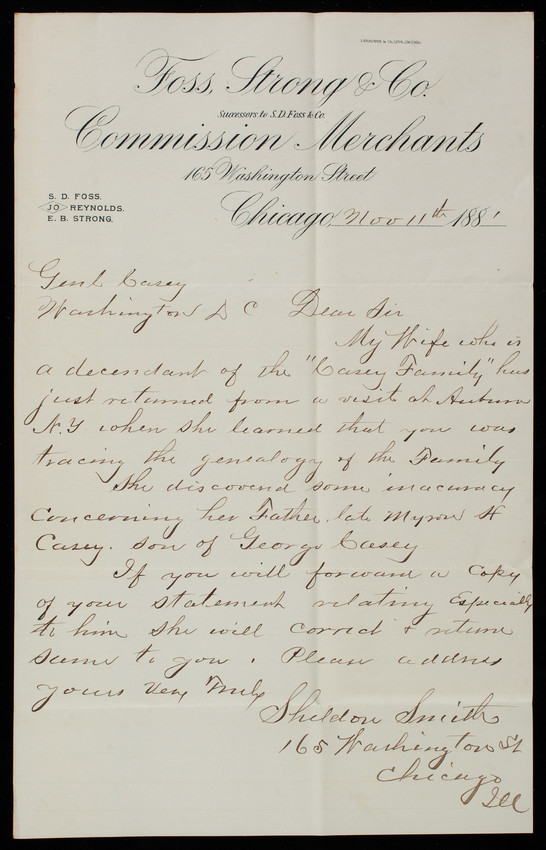 Foss, Strong & Co.
Successors to S. D. Foss & Co.
Commission Merchants
165 Washington Street
S. D. FOSS.
JO REYNOLDS.
E. B. STRONG.
Chicago, Nov 11th 1881
Genl Casey
Washington D C Dear Sir
My Wife who is
a decendant of the "Casey Family" has
just returned from a visit at Auburn
N.Y when she learned that you was
tracing the genealogy of the Family
She discovered some inacuracy
concerning her Father late Myron H
Casey. son of George Casey
If you will forward a Copy
of your statement relating Especially
to him she will correct & return
same to you. Please address
yours Very Truly
Sheldon Smith
165 Washington St
Chicago
Ill